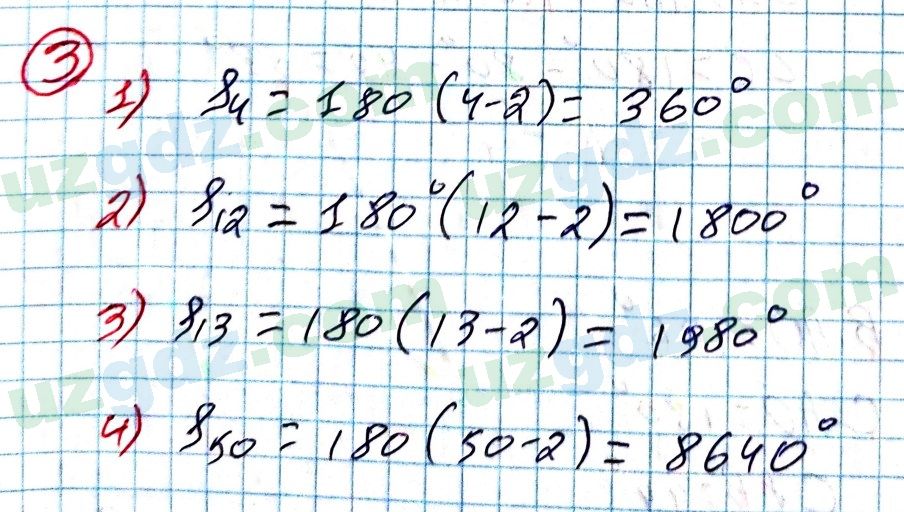 3
1) S₄ = 180 (4-2) = 360°
2) S₁₂ = 180° (12-2) = 1800°
3) S₁₃ = 180 (13-2) = 1980°
4) S₅₀ = 180 (50-2) = 8640°
uzgdz.com
uzgdz.com
uzgdz.com
uzgdz.com